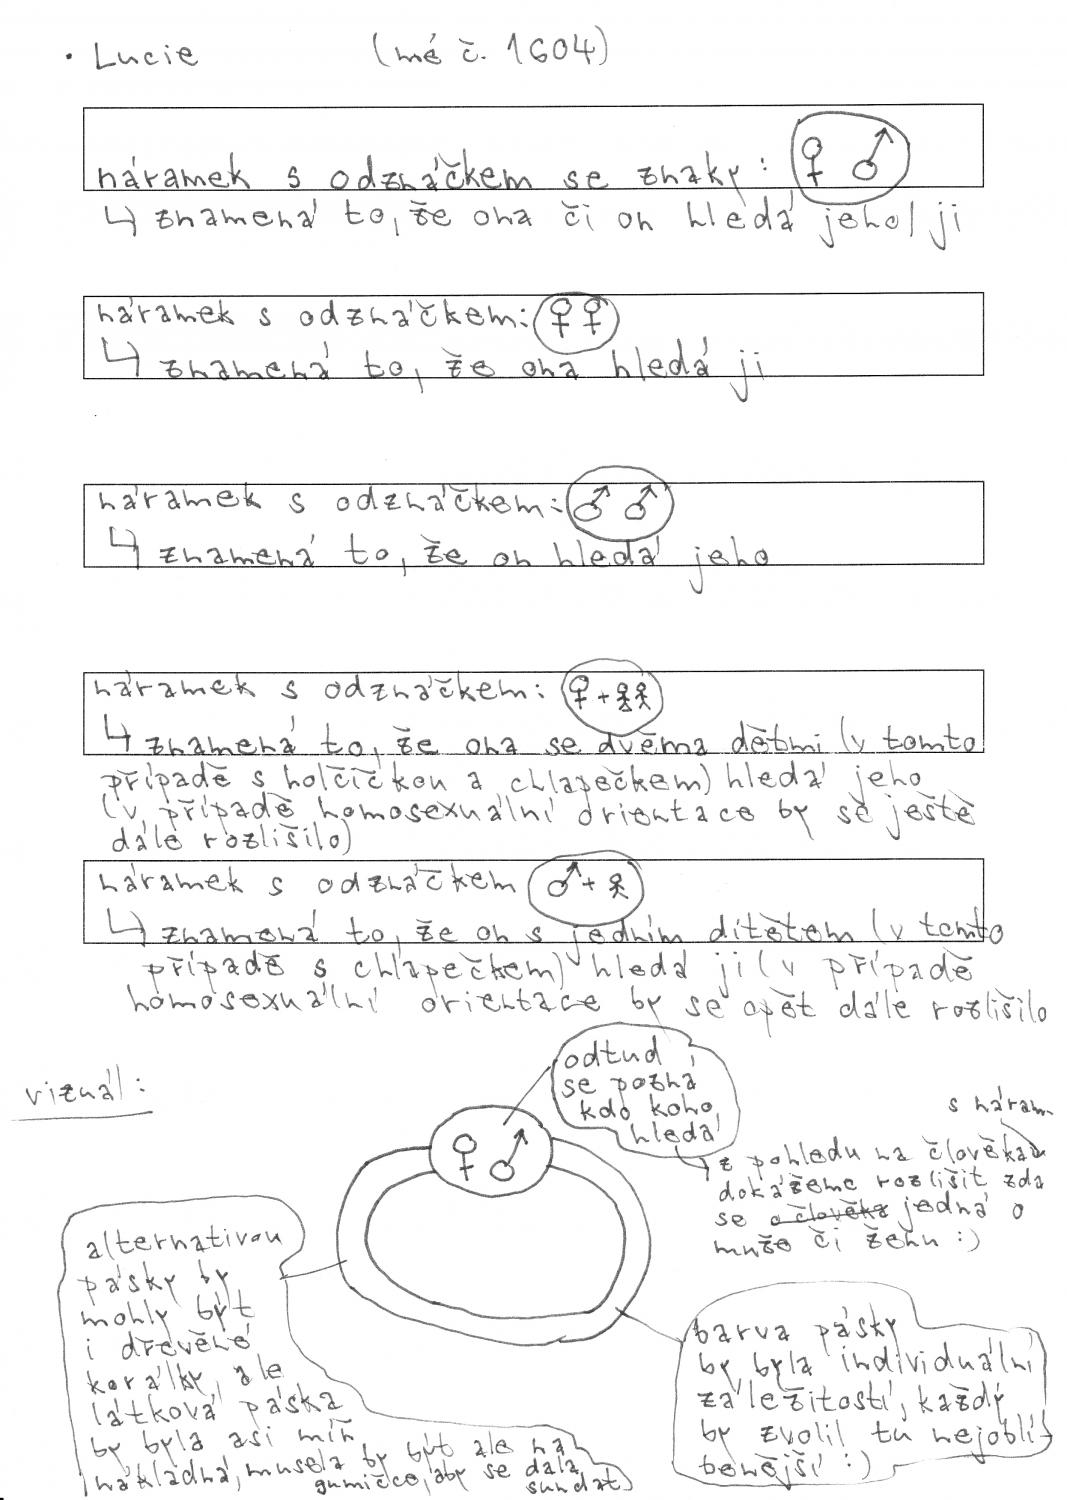 • Lucie (mé č. 1604)
náramek s odznáčkem se znaky: ♀ ♂
↳ znamená to, že ona či on hledá jeho/ji
náramek s odznáčkem: ♀♀
↳ znamená to, že ona hledá ji
náramek s odznáčkem: ♂ ♂
↳ znamená to, že on hledá jeho
náramek s odznáčkem: ♀ +
↳ znamená to, že ona se dvěma dětmi (v tomto
případě s holčičkou a chlapečkem) hledá jeho
(v případě homosexuální orientace by se ještě
dále rozlišilo)
náramek s odznáčkem ♂ +
↳ znamená to, že on s jedním dítětem (v tomto
případě s chlapečkem) hledá ji (v případě
homosexuální orientace by se opět dále rozlišilo
vizuál:
odtud
se pozná
kdo koho
hledá
♀ ♂
s náram.
z pohledu na člověka
dokážeme rozlišit zda
se o člověka jedná o
muže či ženu :)
alternativou
pásky by
mohly být
i dřevěné
korálky, ale
látková páska
by byla asi míň
nákladná, musela by být ale na
gumičce, aby se dala
sundat)
barva pásky
by byla individuální
záležitostí, každý
by zvolil tu nejoblí-
benější :)